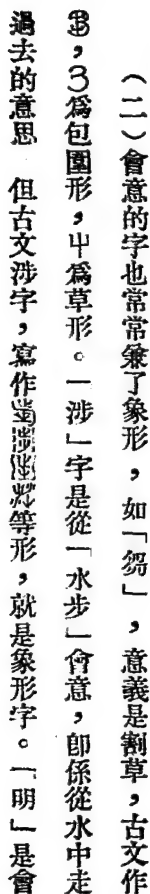 （二）會意的字也常常兼了象形，如「芻」，意義是割草，古文作
，為包圍形，屮為草形。「涉」字是從「水步」會意，即係從水中走
過去的意思　但古文涉字，寫作等形，就是象形字。「明」是會